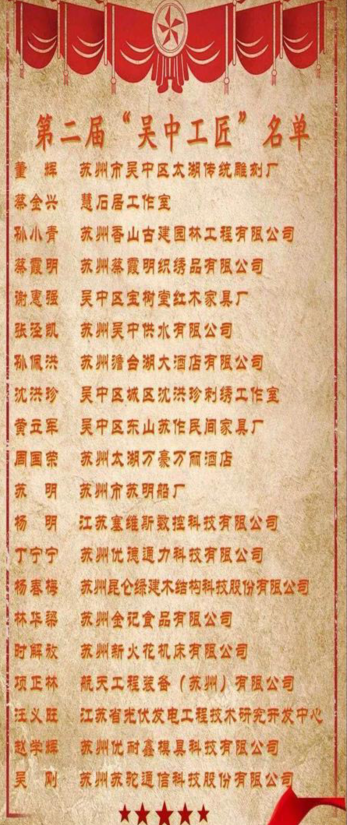 第二届“吴中工匠”名单
董 辉 苏州市吴中区太湖传统雕刻厂
蔡金兴 慧石居工作室
孙小青 苏州香山古建园林工程有限公司
蔡霞明 苏州蔡霞明织绣品有限公司
谢惠强 吴中区宝树堂红木家具厂
张泾凯 苏州吴中供水有限公司
孙佩洪 苏州澹台湖大酒店有限公司
沈洪珍 吴中区城区沈洪珍刺绣工作室
黄亚军 吴中区东山苏作民间家具厂
周国荣 苏州太湖万豪万丽酒店
苏 明 苏州市苏明船厂
杨 明 江苏塞维斯数控科技有限公司
丁宁宁 苏州优德通力科技有限公司
杨春梅 苏州昆仑绿建木结构科技股份有限公司
林华梁 苏州金记食品有限公司
时解放 苏州新火花机床有限公司
项正林 航天工程装备（苏州）有限公司
汪义旺 江苏省光伏发电工程技术研究开发中心
赵学辉 苏州优耐鑫模具科技有限公司
吴 刚 苏州苏驼通信科技股份有限公司